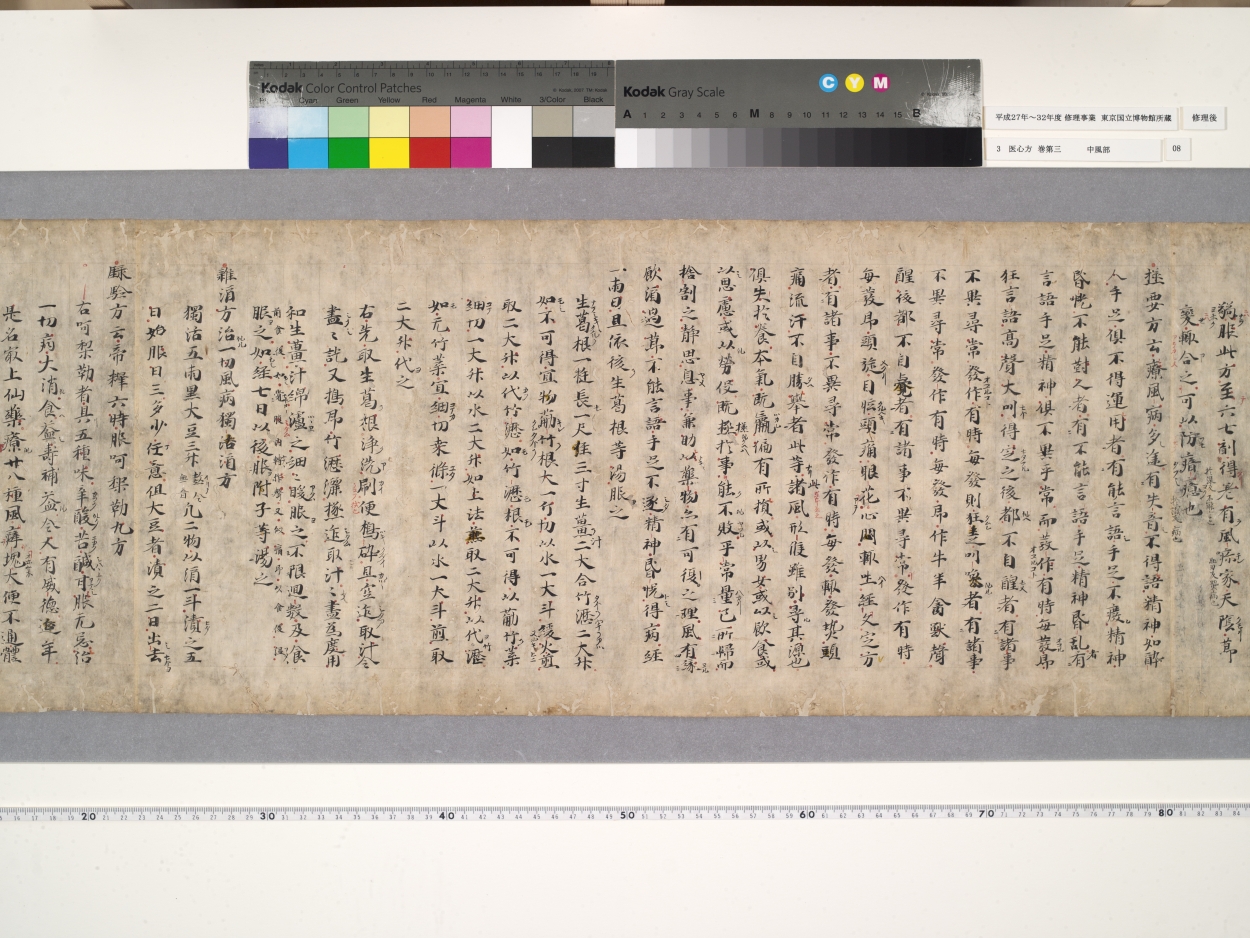 Kodak Color Control Patches
Cyan Green Yellow Red Magenta White 3/Color Black
Kodak Gray Scale
C Y M
A 1 2 3 4 5 6 M 8 9 10 11 12 13 14 15 B
平成27年～32年度 修理事業 東京国立博物館所蔵
修理後
3 医心方 巻第三 中風部
08
服此方至六七剤得差有風疹家天陰節
藥令之可以防瘖瘂也
拯要方云療風病多途有失音不得語精神如醉
人手足俱不得運用者有能言語手足不癈精神
昏恍不能對人者有不能言語手足精神昏亂有
言語手足精神俱不異乎常而發作有時每發即
狂言語高聲大叫得定之後都不自醒者有諸事
不異尋常發作有時每發則狂走叫喚者有諸事
不異尋常發作有時每發即作牛羊禽獸聲
醒後都不自覺者有諸事不異尋常發作有時
每發即頭旋目眩頭痛眼花心悶輙吐經久方
者有諸事不異尋常發作有時每發輙發熱頭
痛流汗不自勝舉者此等諸風形候雖別尋其源也
俱失於養本氣既羸偏有所損或以男女或以飲食或
以思慮或以勞役既極於事能不敗乎常量已所歸而
捨割之靜思息事兼助以藥物亦有可復之理風有
飲消過節不能言語手足不遂精神昏恍得病經
一兩日且依後生葛根等湯服之
生葛根一挺長一尺徑三寸生薑汁二大合竹瀝二大升
如不可得宜物筋竹根大一斤切以水一大斗緩火煎
取二大升以代竹瀝如竹瀝根不可得以筋竹葉
細切一大升以水二大升如上法煎取二大升以代瀝
如无竹葉宜細切末條一大斗以水一大斗煎取
二大升代之
右先取生葛根淨洗刷便搗碎且空迮取汁令
盡訖又搗即竹瀝灑後迮取汁盡為度用
和生薑汁綿濾之細細暖服之不限迴數及食
服之如經七日以後服附子等湯之
雜酒方治一切風病獨活酒方
獨活五兩黒大豆三升熬凡二物以酒一斗漬之五
日始服日三多少任意但大豆者漬之二日出去
録驗方云帝釋六時服呵梨勒丸方
右呵梨勒者具五種味辛酸苦鹹甘服无忌治
一切病大消食益壽補益令人有威德造年
是名最上仙藥療廿八種風癖塊大便不通體
20 30 40 50 60 70 80